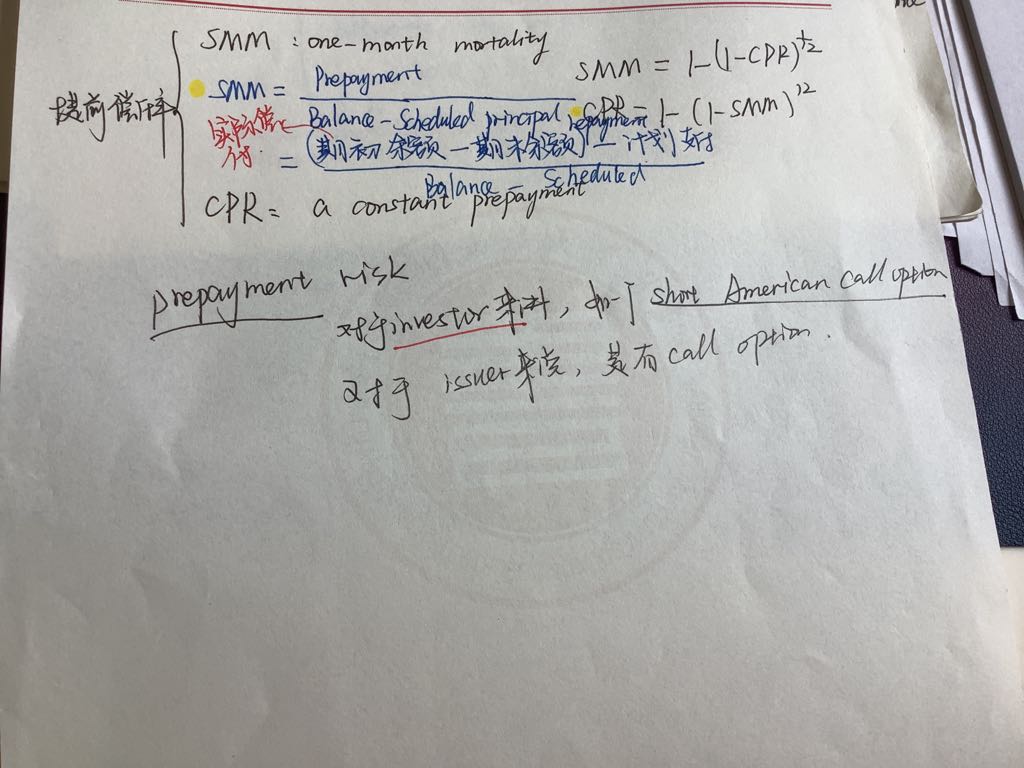 SMM : one-month mortality
SMM = 1-(1-CPR)^{1/12}
提前偿付率
SMM = Prepayment / Balance - Scheduled principal repayment
CPR = 1-(1-SMM)^{12}
实际偿付
= (期初余额 - 期末余额) - 计划支付 / Balance - Scheduled
CPR = a constant prepayment
prepayment risk
对于investor来讲, 如一个 short American call option
对于 issuer来说, 含有 call option.